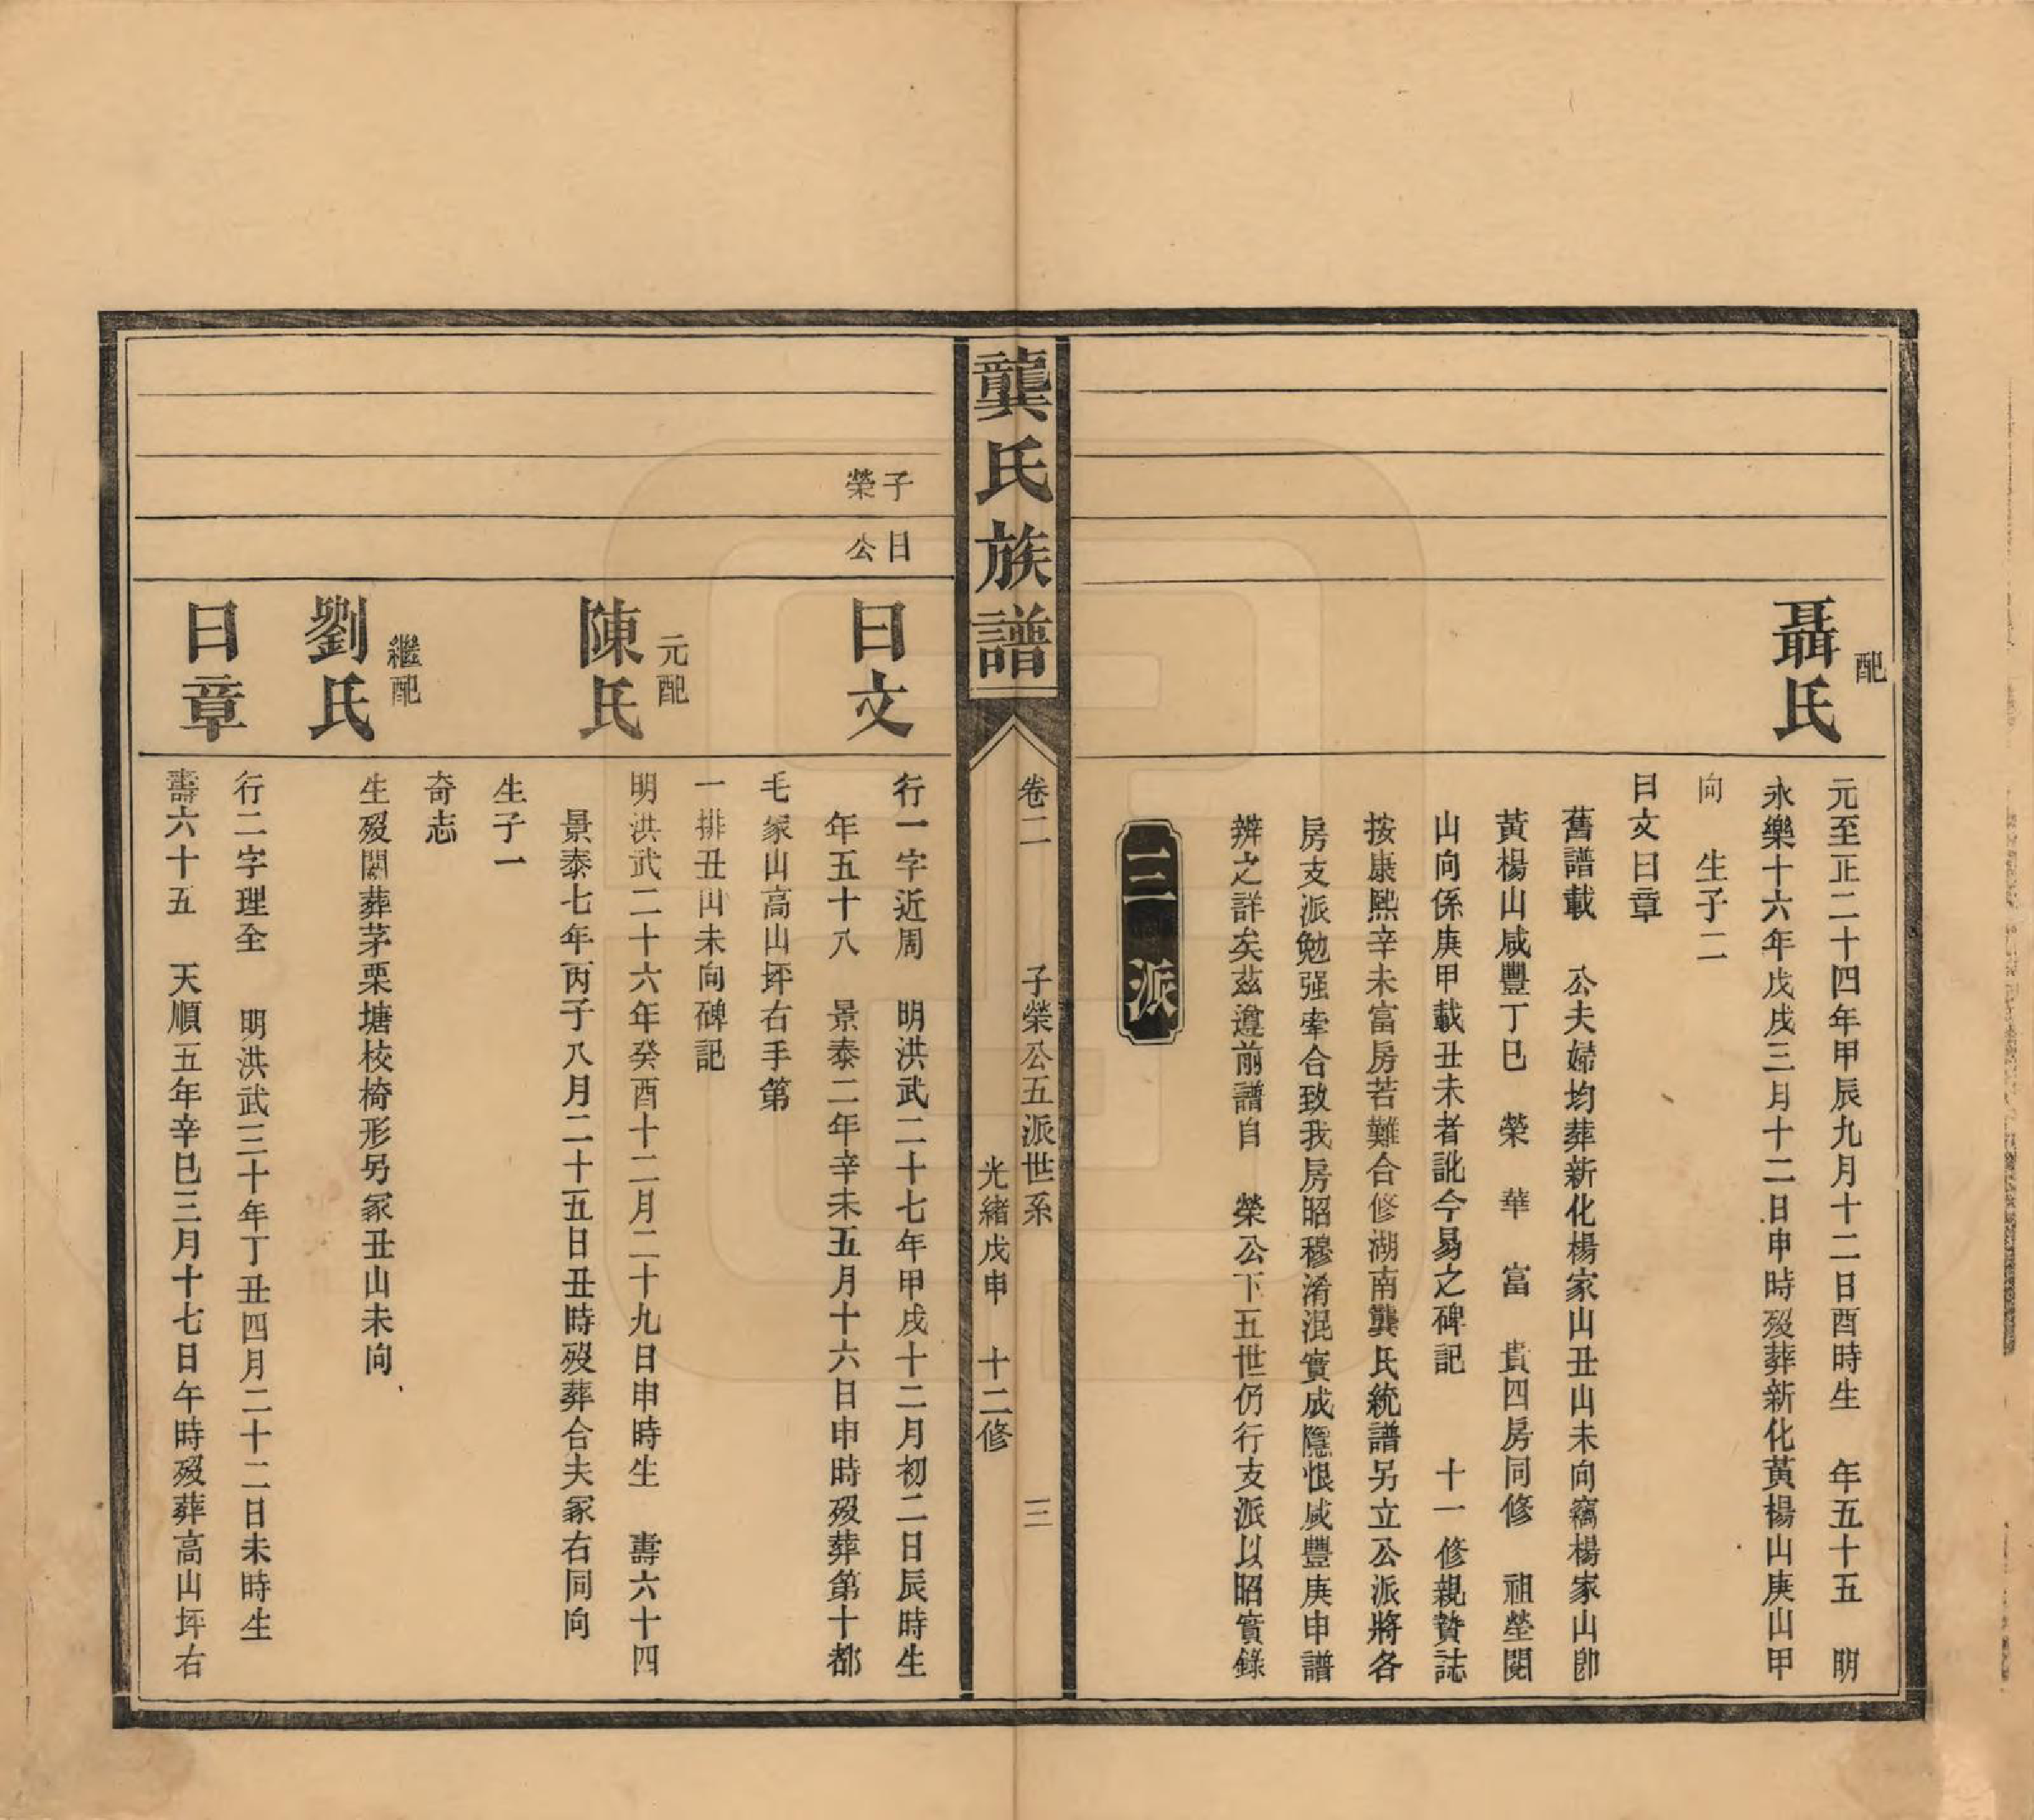 配
聶氏
元至正二十四年甲辰九月十二日酉時生　年五十五　明
永樂十六年戊戌三月十二日申時歿葬新化黃楊山庚山甲
向　生子二
曰文曰章
舊譜載　公夫婦均葬新化楊家山丑山未向竊楊家山卽
黃楊山咸豐丁巳　榮　華　富　貴四房同修　祖塋閱
山向係庚甲載丑未者訛今易之碑記　　十一修親贊誌
按康熙辛未富房若難合修湖南龔氏統譜另立公派將各
房支派勉强牽合致我房昭穆淆混實成隱恨咸豐庚申譜
辨之詳矣茲遵前譜自　榮公下五世仍行支派以昭實錄
三派
龔氏族譜
卷二　子榮公五派世系　三
光緒戊申　十二修
子曰
榮公
曰文
行一字近周　明洪武二十七年甲戌十二月初二日辰時生
年五十八　景泰二年辛未五月十六日申時歿葬第十都
毛家山高山坪右手第
一排丑山未向碑記
元配
陳氏
明洪武二十六年癸酉十二月二十九日申時生　壽六十四
景泰七年丙子八月二十五日丑時歿葬合夫冢右同向
生子一
奇志
繼配
劉氏
生歿闕葬茅栗塘校椅形另冢丑山未向
曰章
行二字理全　明洪武三十年丁丑四月二十二日未時生
壽六十五　天順五年辛巳三月十七日午時歿葬高山坪右